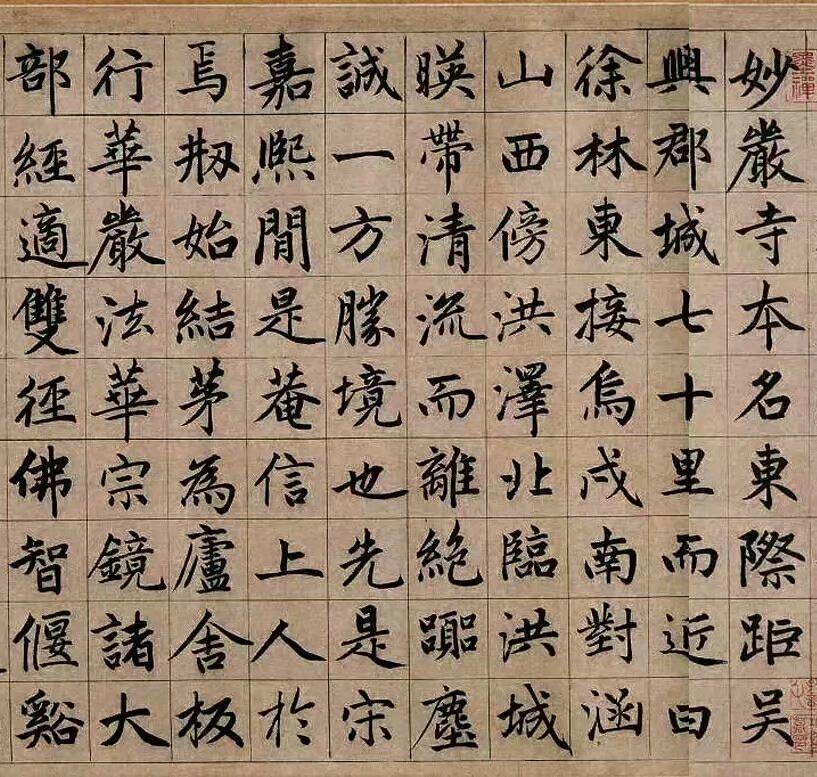 妙嚴寺本名東際距吳
興郡城七十里而近曰
徐林東接烏戍南對涵
山西傍洪澤北臨洪城
暎帶清流而離絕囂塵
誠一方勝境也先是宋
嘉熙閒是菴信上人於
焉剏始結茅為廬舍板
行華嚴法華宗鏡諸大
部經適雙徑佛智偃谿